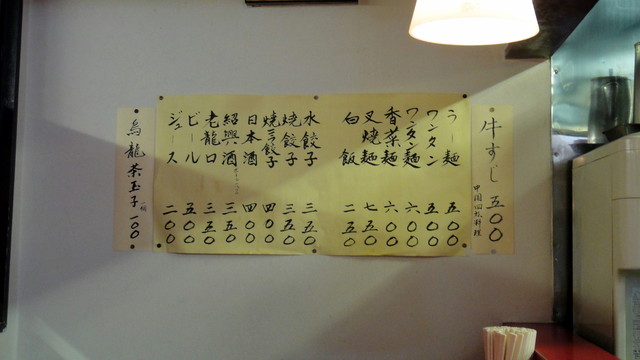 牛すじ 五〇〇
中国回族料理
らー麺 五〇〇
ワンタン 五〇〇
ワンタン麺 六〇〇
香菜麺 六〇〇
叉焼麺 七五〇
白飯 二五〇
水餃子 三五〇
焼餃子 三五〇
焼ニラ餃子 四〇〇
日本酒 四〇〇
紹興酒 三五〇
老龍口 三五〇
ビール 五〇〇
ジュース 二〇〇
烏龍茶玉子 一個 一〇〇